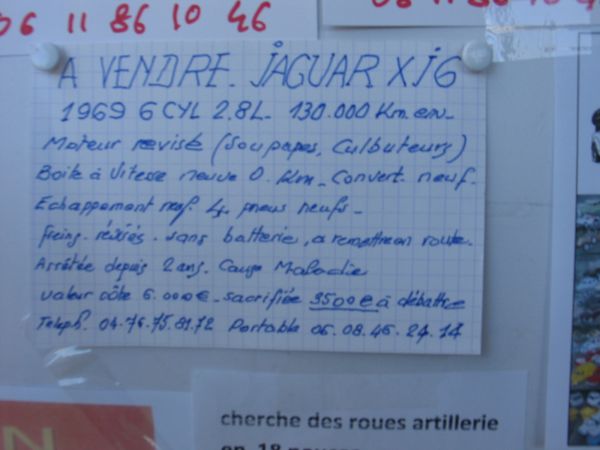 06 11 86 10 46
06 11 86 10
A VENDRE. JAGUAR XJ6
1969 6 CYL 2.8L. 130.000 Km. env.
Moteur revisé (Soupapes, Culbuteurs)
Boite à Vitesse neuve 0. Km. Convert. neuf.
Echappement neuf. 4 pneus neufs.
freins. révisés. sans batterie, a remettre en route.
Arrêtée depuis 2 ans. Cause Maladie
valeur côte 6.000€. sacrifiée 3500€ à débattre
Teleph. 04.76.75.81.72 Portable 06.08.46.24.14
cherche des roues artillerie
en 18 pouces
N